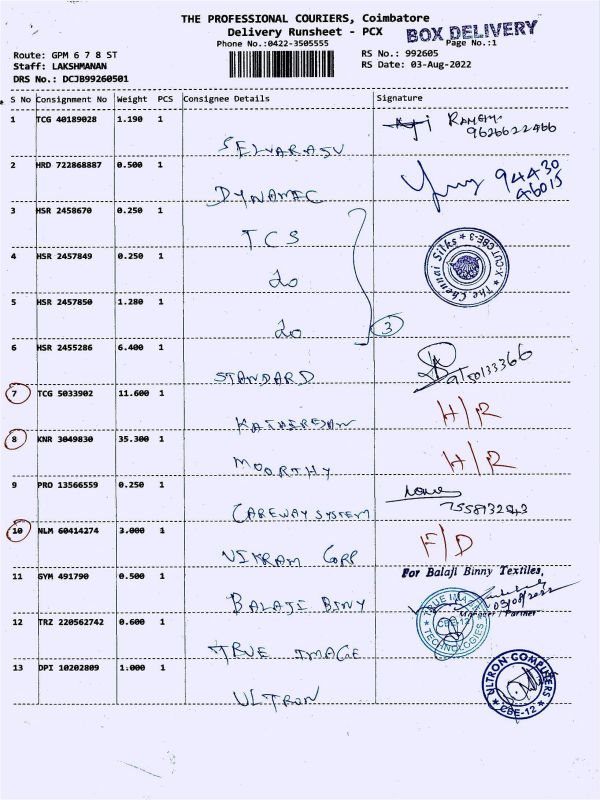 THE PROFESSIONAL COURIERS, Coimbatore
Delivery Runsheet - PCX
BOX DELIVERY
Phone No.:0422-3505555
Page No.:1
Route: GPM 6 7 8 ST
RS No.: 992605
Staff: LAKSHMANAN
RS Date: 03-Aug-2022
DRS No.: DCJB99260501
S No Consignment No Weight PCS Consignee Details Signature
1 TCG 40189028 1.190 1 SELVARASU RAMESH 9626622466
2 HRD 722868887 0.500 1 DYNAMIC 94430 46015
3 HSR 2458670 0.250 1 TCS
4 HSR 2457849 0.250 1 do
The Chennai Silks * CUT-CBE-3
5 HSR 2457850 1.280 1 do 3
6 HSR 2455286 6.400 1 STANDARD 9150133366
7 TCG 5033902 11.600 1 KATHIRESAN H/R
8 KNR 3049830 35.300 1 MOORTHY H/R
9 PRO 13566559 0.250 1 CAREWAY SYSTEM
10 NLM 60414274 3.000 1 VIKRAM CORP F/D
For Balaji Binny Textiles,
11 GYM 491790 0.500 1 BALAJI BINY 03/08/2022
Manager / Partner
12 TRZ 220562742 0.600 1 TRUE IMAGE
TRUE IMAGE TECHNOLOGIES CBE-12
13 DPI 10202809 1.000 1 ULTRON
ULTRON COMPUTERS CBE-12